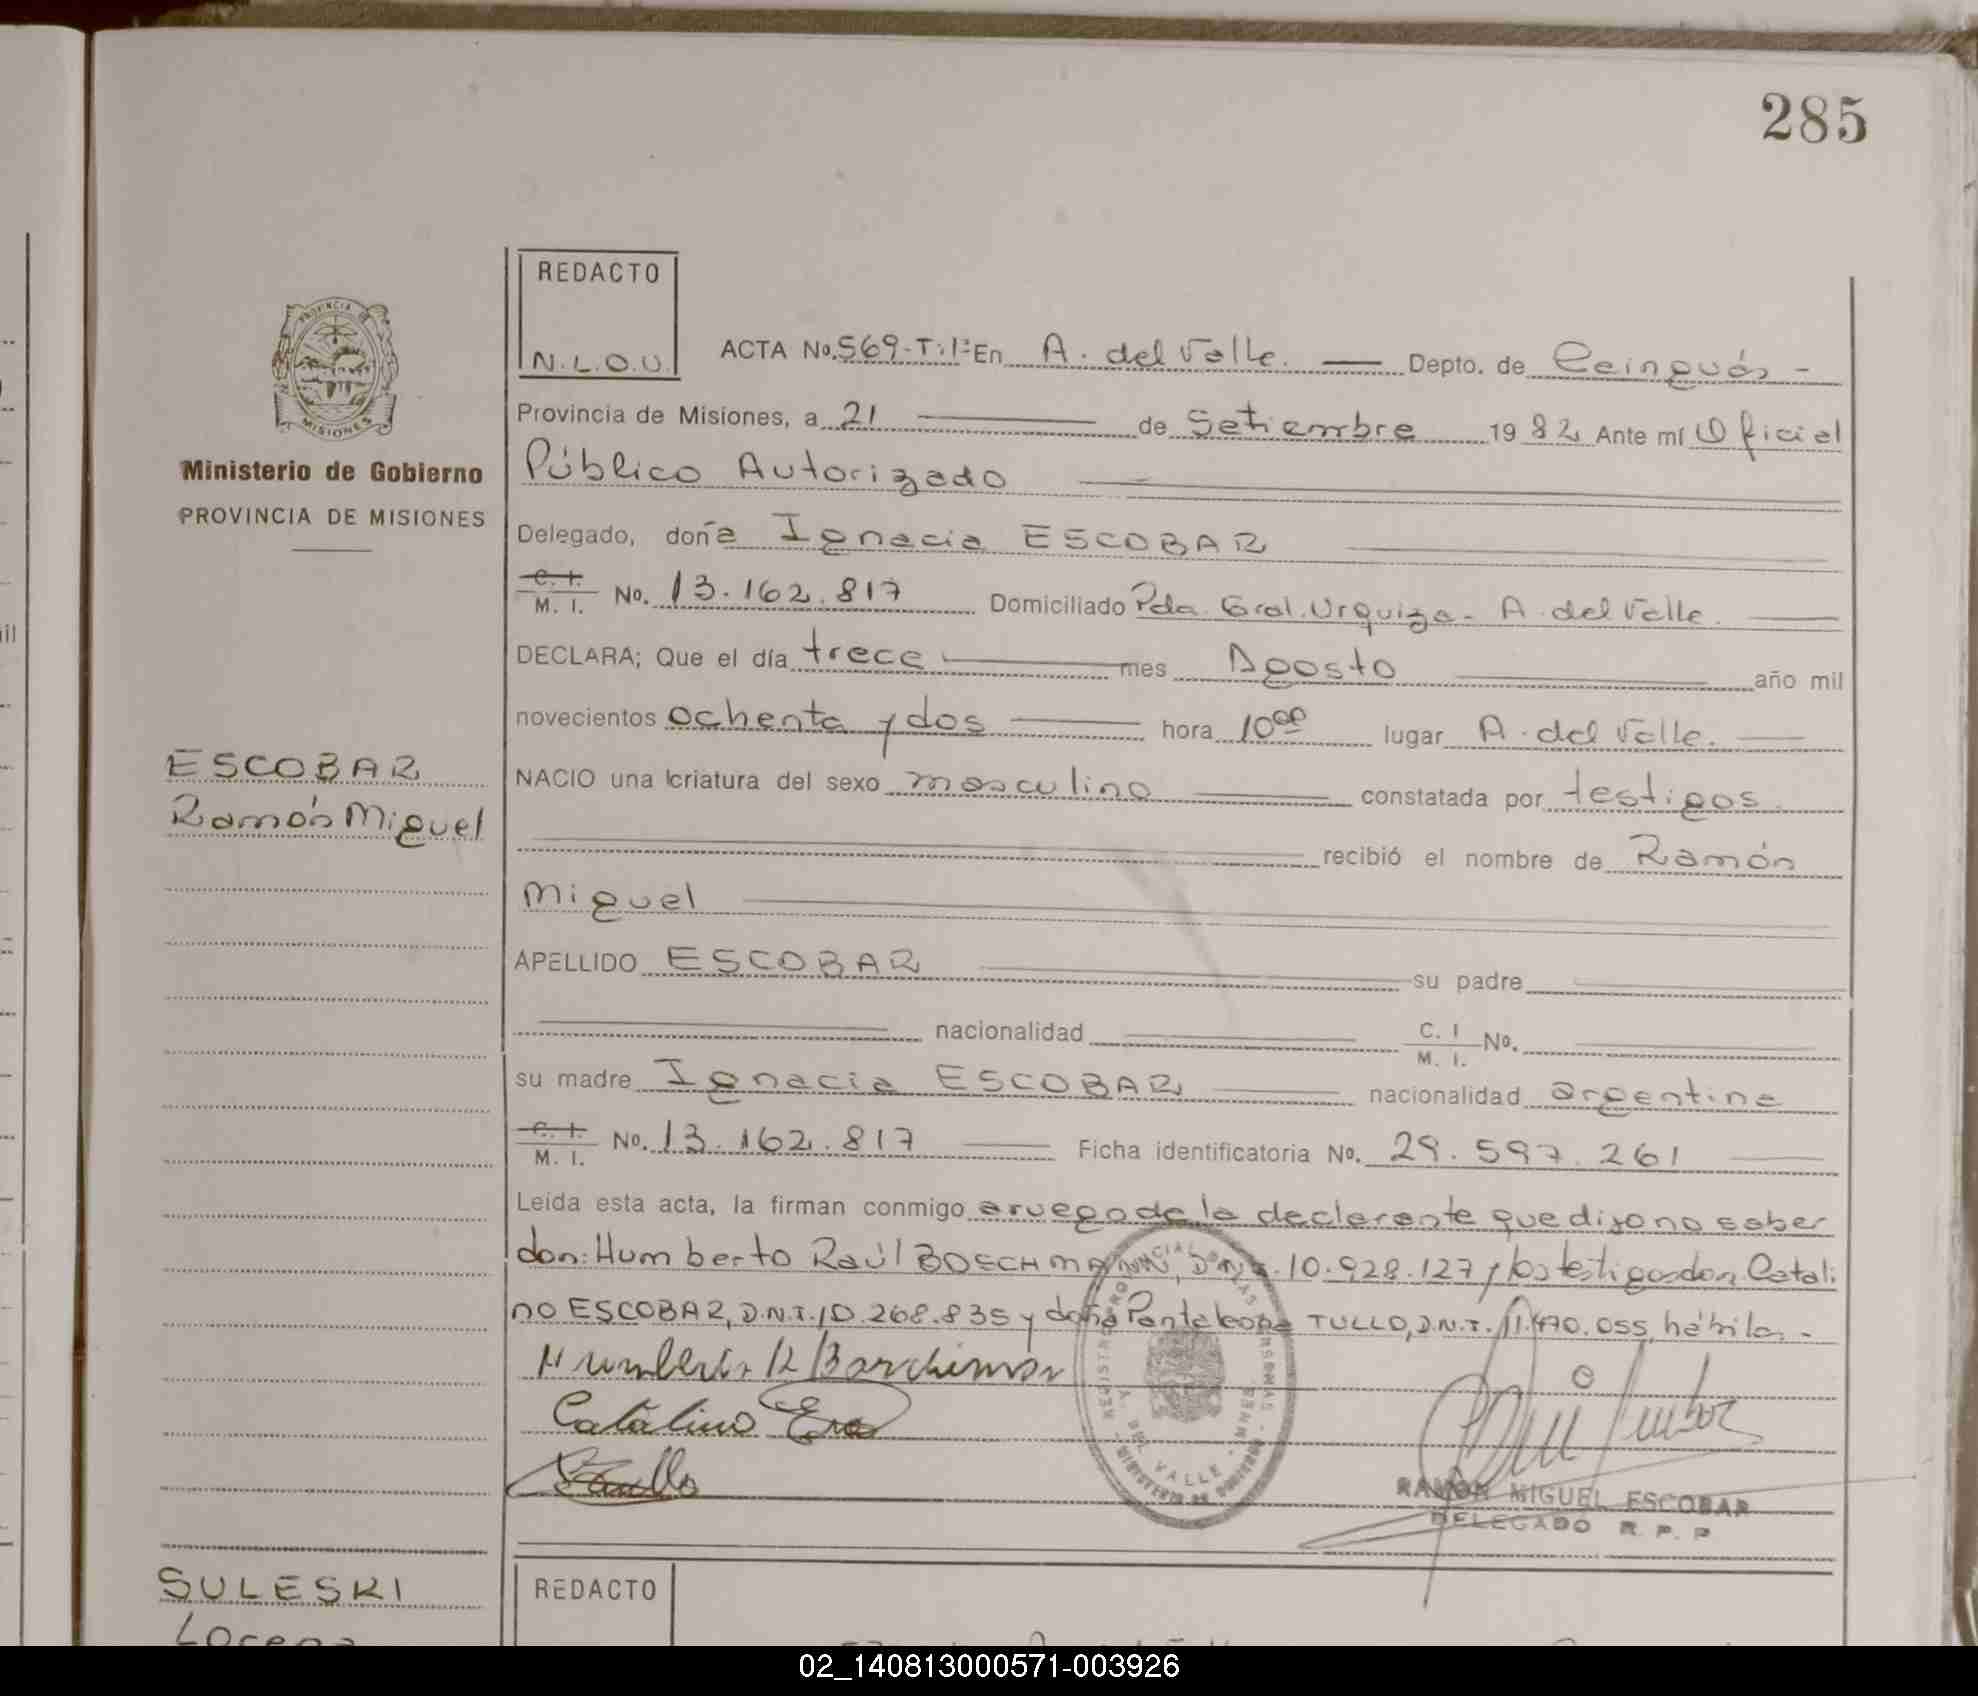 285
REDACTO
N.L.O.U.
PROVINCIA DE
MISIONES
Ministerio de Gobierno
PROVINCIA DE MISIONES
ACTA No. 569-T:1º En A. del Valle. Depto. de Cainguás -
Provincia de Misiones, a 21 de Setiembre 1982 Ante mí Oficial
Público Autorizado
Delegado, doña Ignacia ESCOBAR
C. I. M. I. No. 13.162.817 Domiciliado Pda. Gral. Urquiza - A. del Valle.
DECLARA; Que el día trece mes Agosto año mil
novecientos ochenta y dos hora 10oo lugar A. del Valle.
ESCOBAR
Ramón Miguel
NACIO una criatura del sexo masculino constatada por testigos
recibió el nombre de Ramón
Miguel
APELLIDO ESCOBAR su padre
nacionalidad C. I M. I. No.
su madre Ignacia ESCOBAR nacionalidad argentina
C. I. M. I. No. 13.162.817 Ficha identificatoria No. 29.597.261
Leída esta acta, la firman conmigo a ruego de la declarante que dijo no saber
don: Humberto Raúl BOSCHMANN, D.N.I. 10.928.127 y los testigos don Catali
no ESCOBAR, D.N.I. 10.268.835 y doña Pantaleona TULLO, D.N.I. 11.470.055, hábiles. -
Catalino
A. DEL VALLE - MNES.
RAMON MIGUEL ESCOBAR
DELEGADO R. P. P
SULESKI
Lorena
REDACTO
02_140813000571-003926